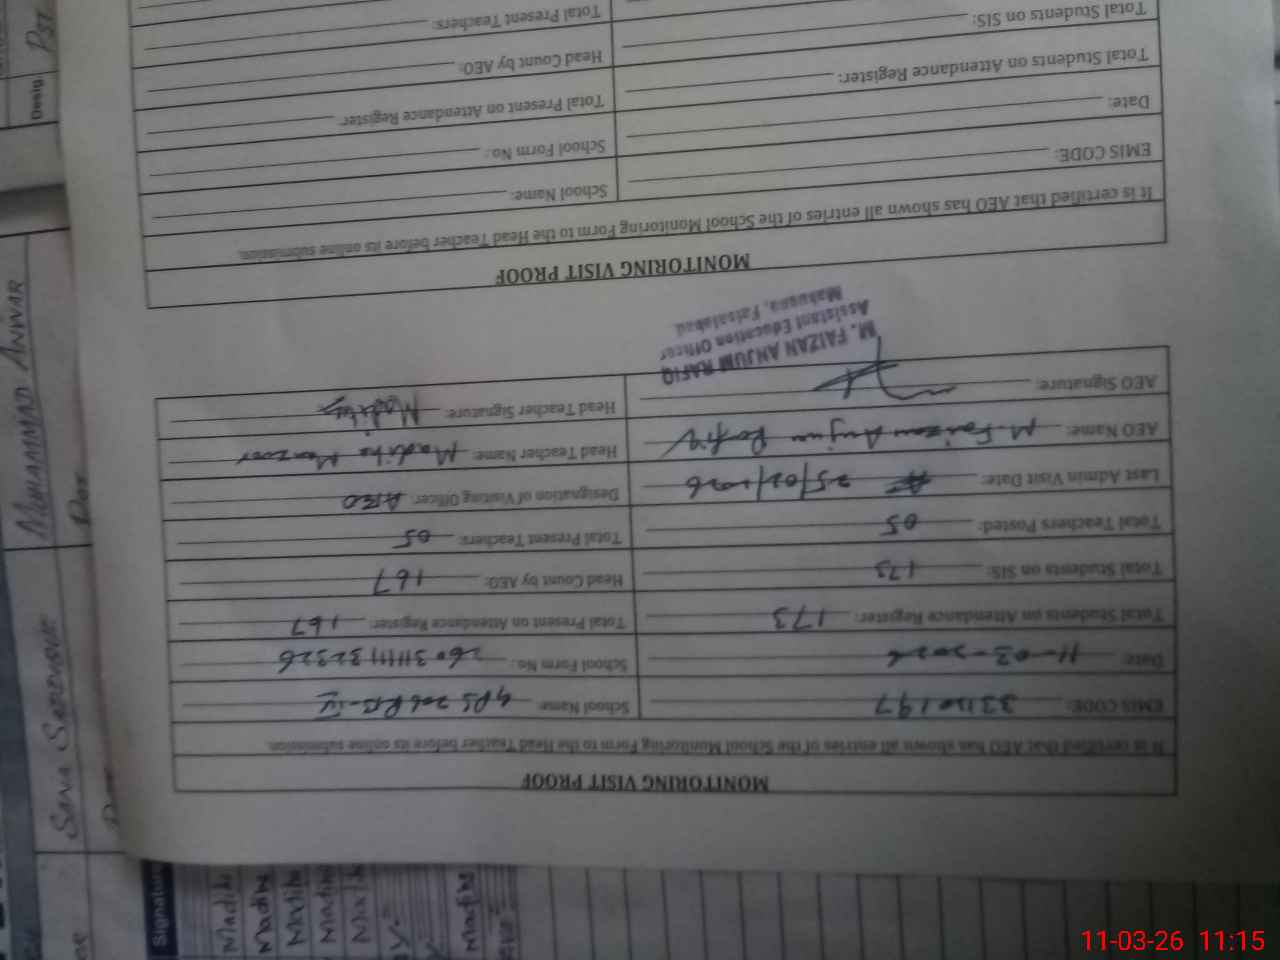 MONITORING VISIT PROOF
It is certified that AEO has shown all entries of the School Monitoring Form to the Head Teacher before its online submission.
EMIS CODE: 33110197
School Name: GPS 206 RB-IV
Date: 11-03-2026
School Form No.:
Total Students on Attendance Register: 173
Total Present on Attendance Register: 167
Total Students on SIS: 173
Head Count by AEO: 167
Total Teachers Posted: 05
Total Present Teachers: 05
Last Admin Visit Date: 25/02/2026
Designation of Visiting Officer: AEO
AEO Name: M. Faizan Anjum Rafiq
Head Teacher Name: Madiha Manzoor
AEO Signature:
Head Teacher Signature: Madiha
M. FAIZAN ANJUM RAFIQ
Assistant Education Officer
Makuana, Faisalabad.
MONITORING VISIT PROOF
It is certified that AEO has shown all entries of the School Monitoring Form to the Head Teacher before its online submission.
EMIS CODE:
School Name:
Date:
School Form No.:
Total Students on Attendance Register:
Total Present on Attendance Register:
Total Students on SIS:
Head Count by AEO:
Total Present Teachers:
Desig
PST
MUHAMMAD ANWAR
Signature
Madiha
Madiha
Madiha
Madiha
Madiha
Madiha
11-03-26 11:15